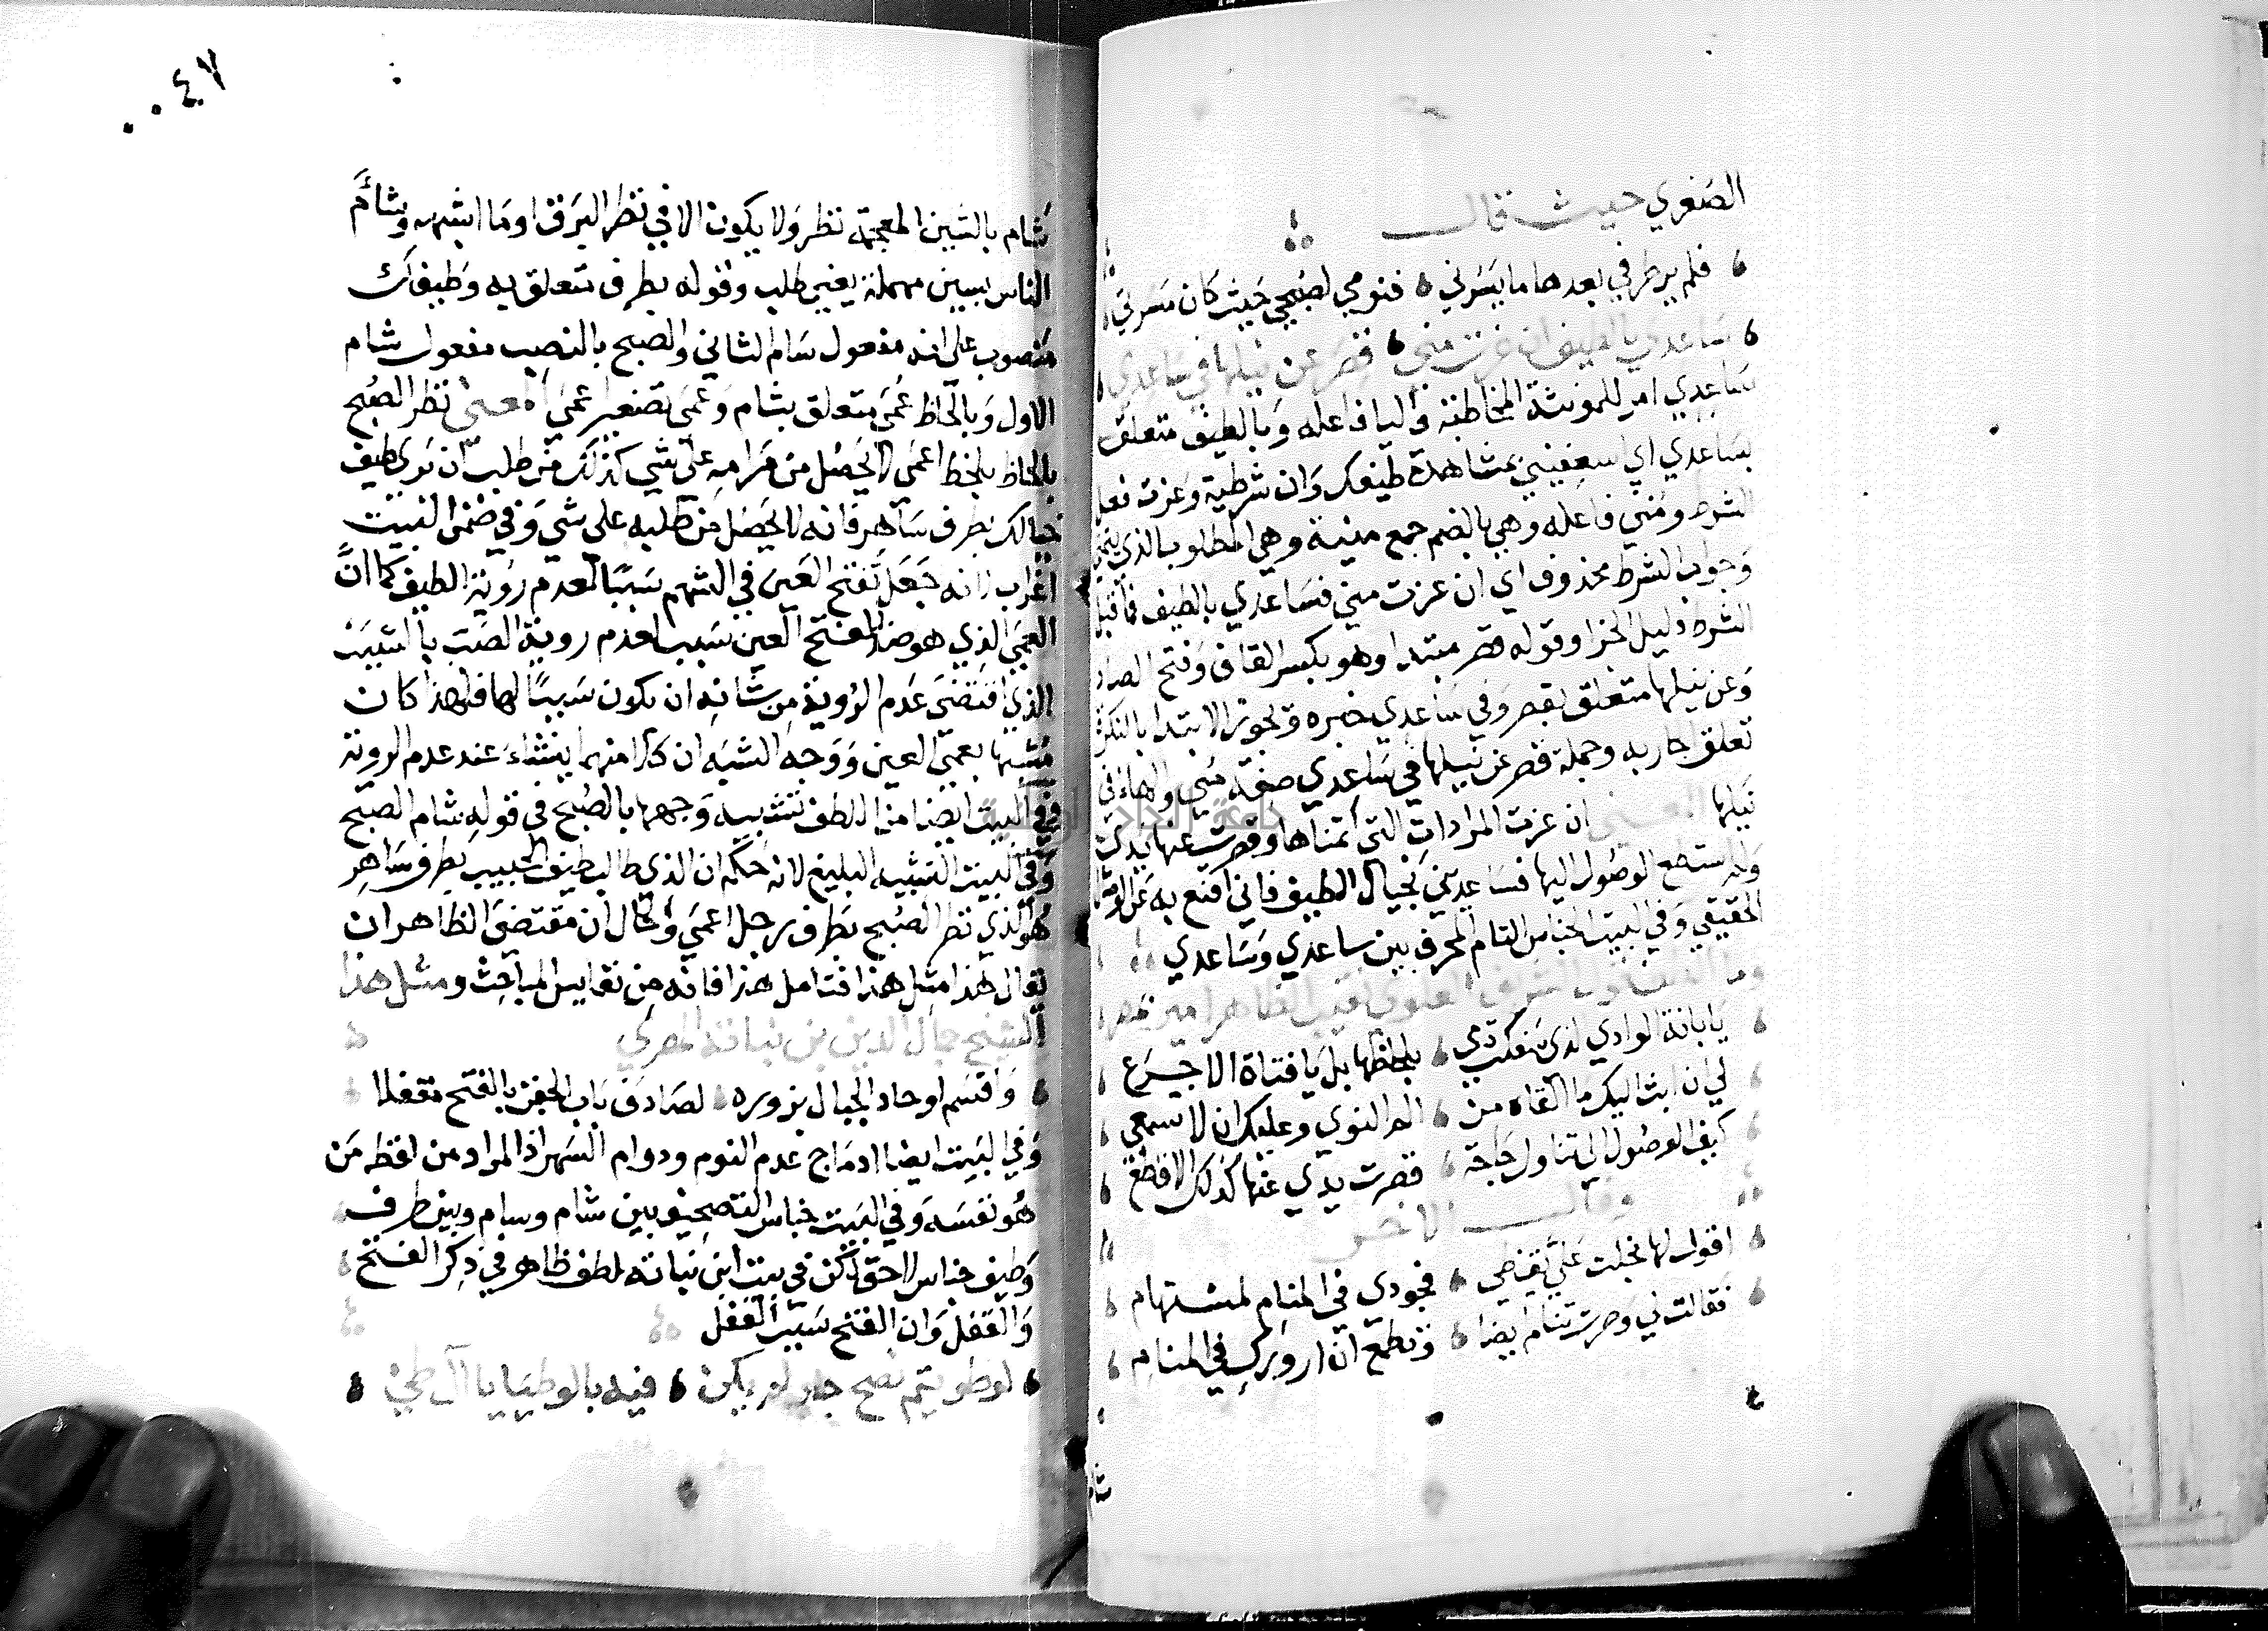 الصغري حيث قال
فلم ير طرفي بعدها ما يسرني فنومي لصبحي حيث كان مسرتي
ساعدي بالطيف ان عزت منى قصر عن نيلها في ساعدي
ساعدي امر للمونثة المخاطبة واليا فاعله وبالطيف متعلق
بساعدي اي اسعفيني بمشاهدة طيفك وان شرطية وعزت فعل
الشرط ومنى فاعله وهي بالضم جمع منية وهي المطلوب الذي يتمنى
وجواب الشرط محذوف اي ان عزت منى فساعدي بالطيف فما قبل
الشرط دليل الجزا وقوله قصر مبتدا وهو بكسر القاف وفتح الصاد
وعن نيلها متعلق بقصر وفي ساعدي خبره وتجوز الابتدا بالنكرة
تعلق الجار به وجملة قصر عن نيلها في ساعدي صفة منى والهاء في
نيلها المعنى ان عزت المرادات التي اتمناها وقصرت عنها يدي
ولم استطع الوصول اليها فساعديني بخيال الطيف فاني اقنع به عن
الحقيقي وفي البيت الجناس التام المحرف بين ساعدي وساعدي
يا بانة الوادي الذي سفكت دمي بلحاظها بل يا فتاة الاجرع
لي ان ابث اليك ما القاه من الم النوي وعليك ان لا تسمعي
كيف الوصول الي تناول حاجة قصرت يدي عنها كذلك الاقطع
وقال الاخر
اقول لها بخلت علي يقظي فجودي في المنام لمستهام
فقالت لي وصرت تنام ايضا وتطمع ان ازورك في المنام
شام
٠٠٤٧
شام بالشين المعجمة نظر ولا يكون الا في نظر البرق او ما اشبهه وشام
الناس بسين مهملة يعني طلب وقوله بطرف متعلق به وطيفك
منصوب على انه مفعول سام الثاني والصبح بالنصب مفعول شام
الاول وبالحاظ عمي متعلق بشام وعمي تصغير اعمى المعنى نظر الصبح
بالحاظ بلحظ اعمى لا يحصل من مرامه على شي كذلك من طلب ان يرى طيف
خيالك بطرف ساهر فانه لا يحصل من طلبه على شي وفي ضمن البيت
اغراب لانه جعل تفتح العين في السهر سببا لعدم روية الطيف كما ان
العمى الذي هو ضد لفتح العين سبب لعدم روية الصب بالتثبت
الذي اقتضى عدم الروية من شانه ان يكون سببا لها فلهذا كان
مشبها بعمى العين ووجه الشبه ان كلا منهما ينشاء عند عدم الروية
وفي البيت ايضا من اللطف تشبيه وجهها بالصبح في قوله شام الصبح
وفي البيت التشبيه البليغ لانه حكم ان الذي طالب طيف الحبيب بطرف ساهر
هو الذي نظر الصبح بطرف رجل اعمى والحال ان مقتضى الظاهر ان
يقال هذا مثل هذا فتامل هذا فانه من نفايس المباحث ومثل هذا
الشيخ جمال الدين بن نباتة المصري
واقسم لو جاد الخيال بزوره لصادف باب الجفن بالفتح مقفلا
وفي البيت ايضا ادماج عدم النوم ودوام السهر اذ المراد من لفظه من
هو نفسه وفي البيت جناس التصحيف بين شام وسام وبين طرف
وطيف جناس لاحق لكن في بيت ابن نباتة لطف ظاهر في ذكر الفتح
والقفل وان الفتح سبب القفل
لو طويتم نصح جار لم يكن فيه بالو طيا يا آل طي